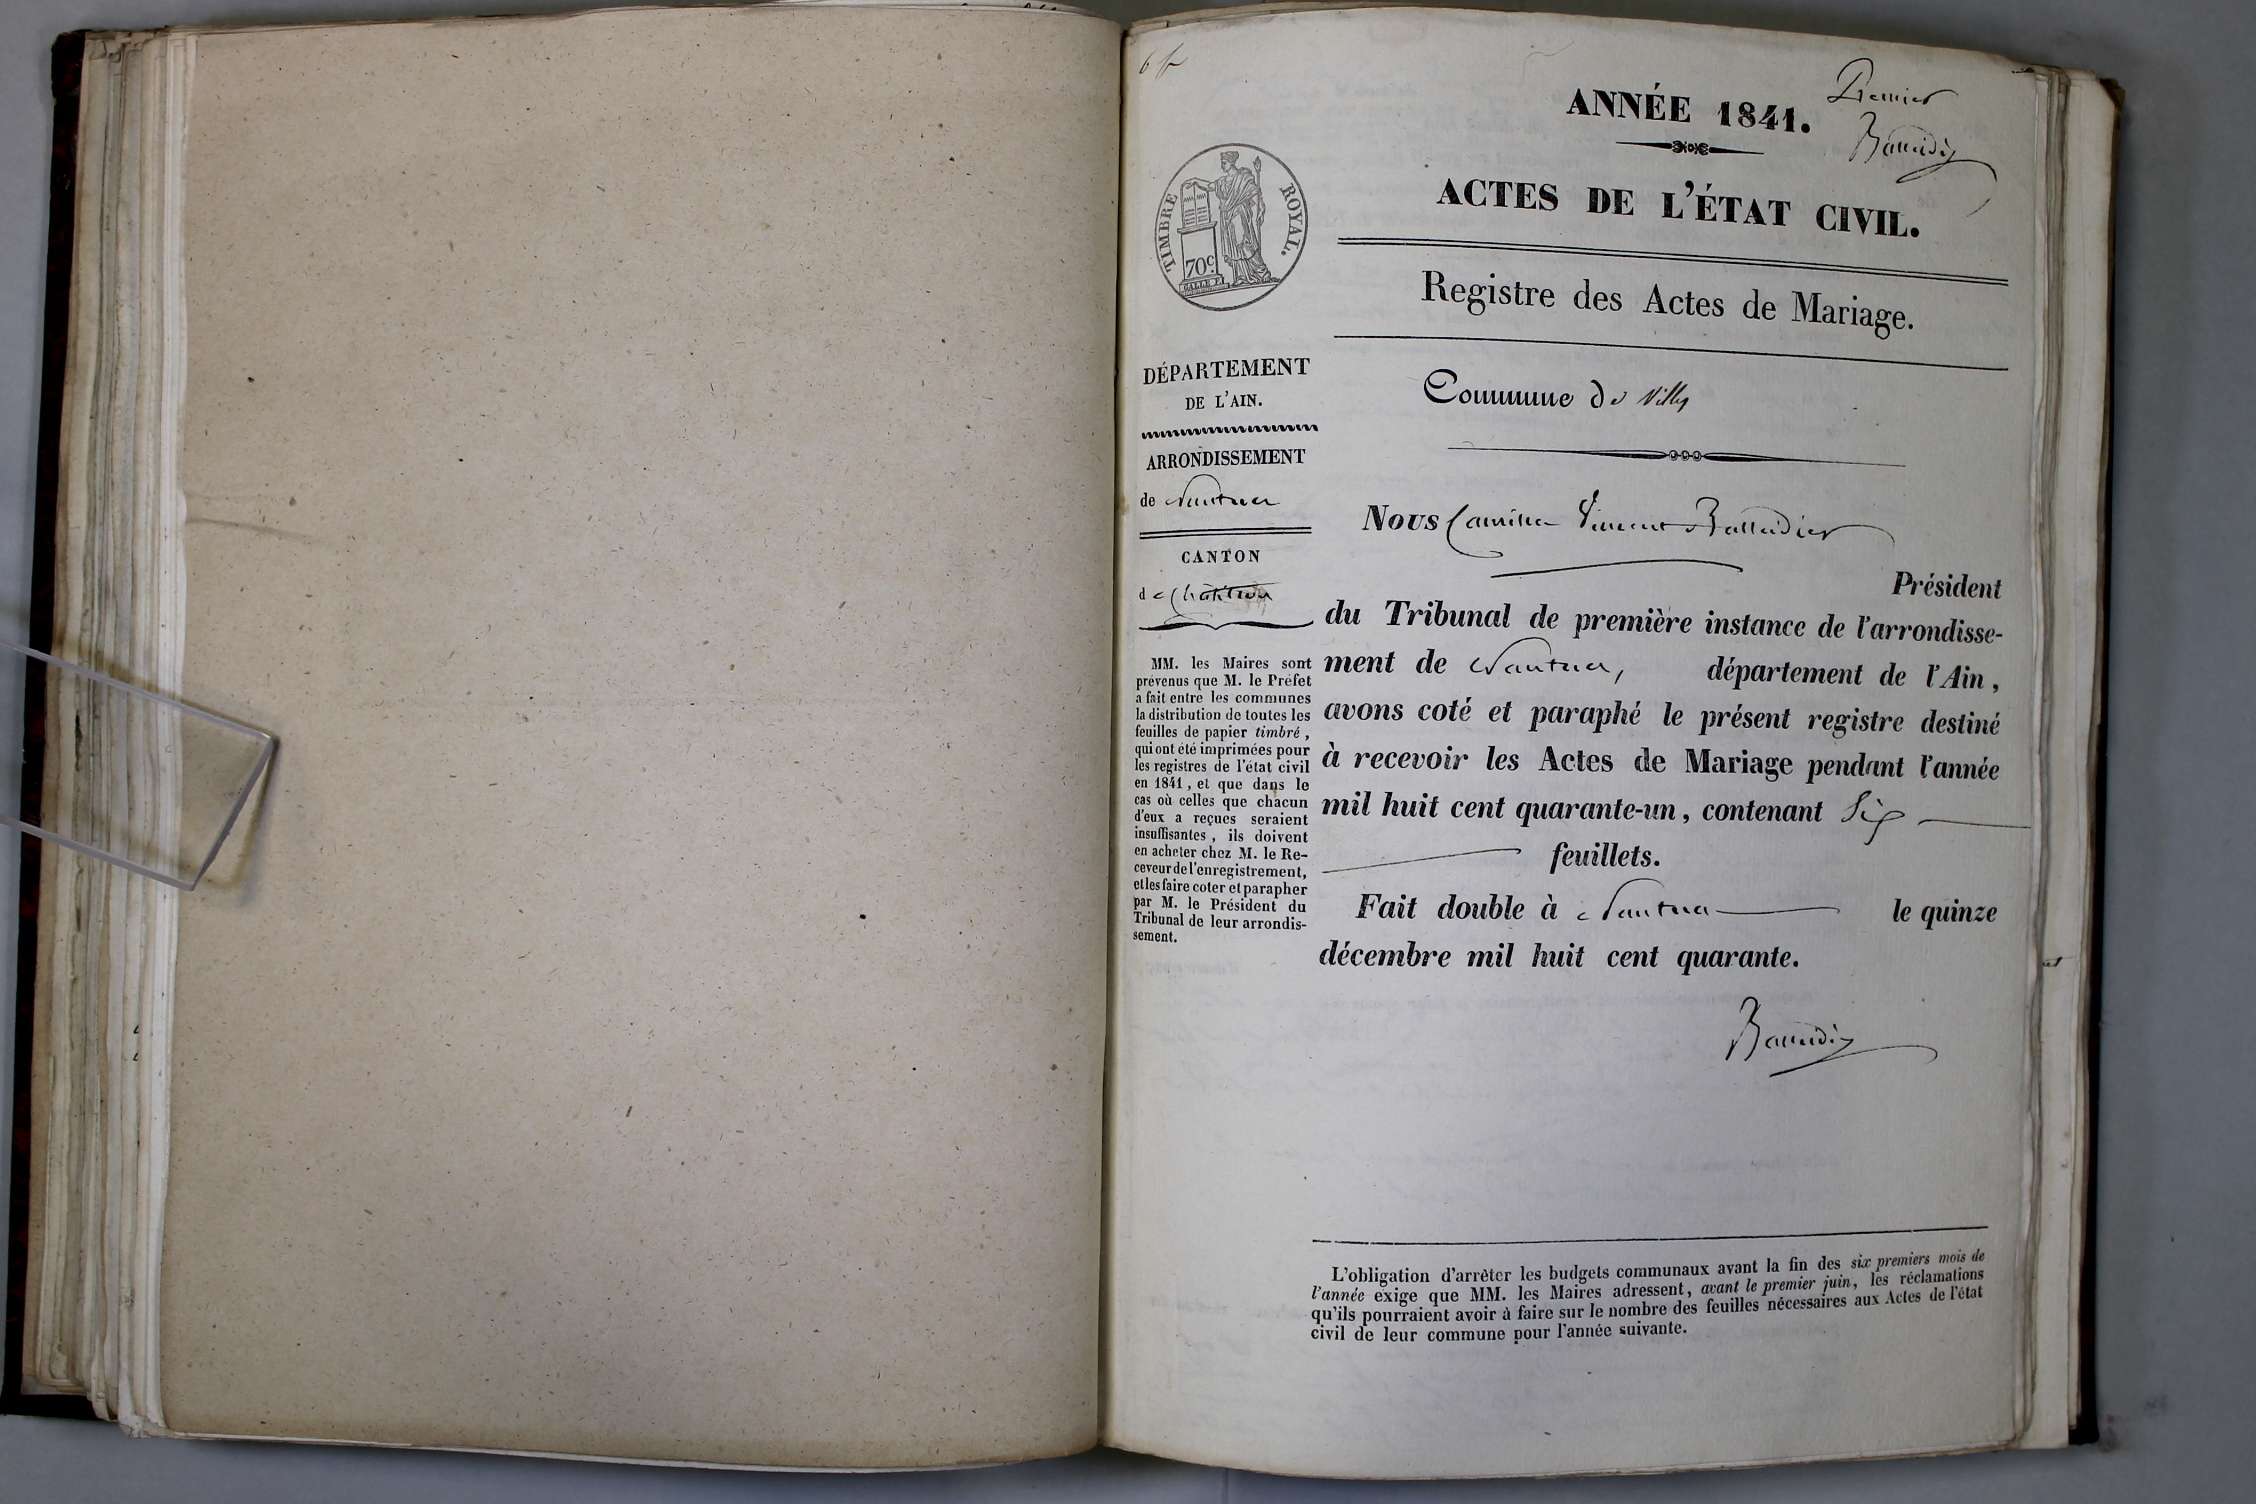 6 f
ANNÉE 1841.
Premier
ACTES DE L'ÉTAT CIVIL.
TIMBRE ROYAL.
70c.
Registre des Actes de Mariage.
DÉPARTEMENT
DE L'AIN.
ARRONDISSEMENT
de Nantua
CANTON
de Châtillon
MM. les Maires sont
prévenus que M. le Préfet
a fait entre les communes
la distribution de toutes les
feuilles de papier timbré,
qui ont été imprimées pour
les registres de l'état civil
en 1841, et que dans le
cas où celles que chacun
d'eux a reçues seraient
insuffisantes, ils doivent
en acheter chez M. le Re-
ceveur de l'enregistrement,
et les faire coter et parapher
par M. le Président du
Tribunal de leur arrondis-
sement.
Commune de Villy
Nous Camille Vincent
Président
du Tribunal de première instance de l'arrondisse-
ment de Nantua, département de l'Ain,
avons coté et paraphé le présent registre destiné
à recevoir les Actes de Mariage pendant l'année
mil huit cent quarante-un, contenant Six
feuillets.
Fait double à Nantua le quinze
décembre mil huit cent quarante.
L'obligation d'arrêter les budgets communaux avant la fin des six premiers mois de
l'année exige que MM. les Maires adressent, avant le premier juin, les réclamations
qu'ils pourraient avoir à faire sur le nombre des feuilles nécessaires aux Actes de l'état
civil de leur commune pour l'année suivante.